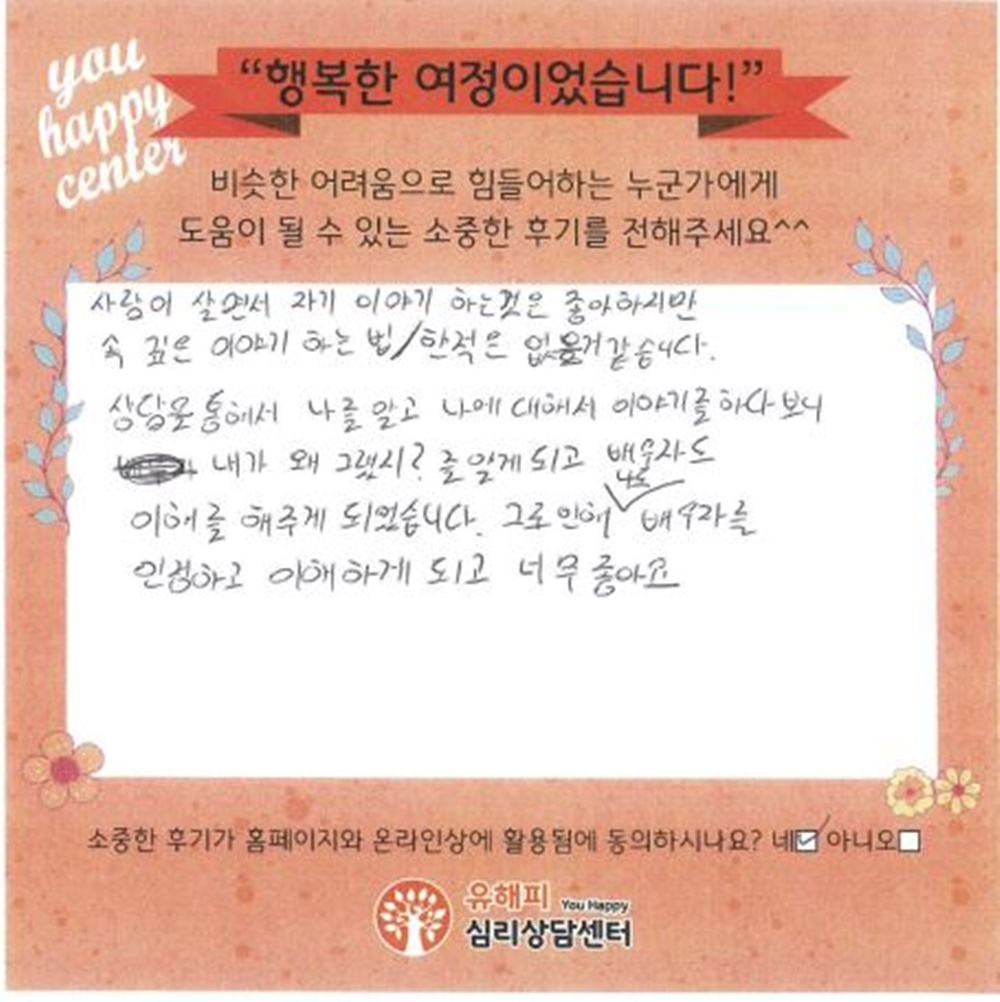 you
happy
center
“행복한 여정이었습니다!”
비슷한 어려움으로 힘들어하는 누군가에게
도움이 될 수 있는 소중한 후기를 전해주세요^^
사람이 살면서 자기 이야기 하는것은 좋아하지만
속 깊은 이야기 하는 법/한적은 없을거같습니다.
상담을 통해서 나를 알고 나에 대해서 이야기를 하다보니
내가 왜 그랬지? 를 알게되고 배우자도
이해를 해주게 되었습니다. 그로인해 나도 배우자를
인정하고 이해하게 되고 너무 좋아요
소중한 후기가 홈페이지와 온라인상에 활용됨에 동의하시나요? 네☑ 아니오☐
유해피 You Happy
심리상담센터